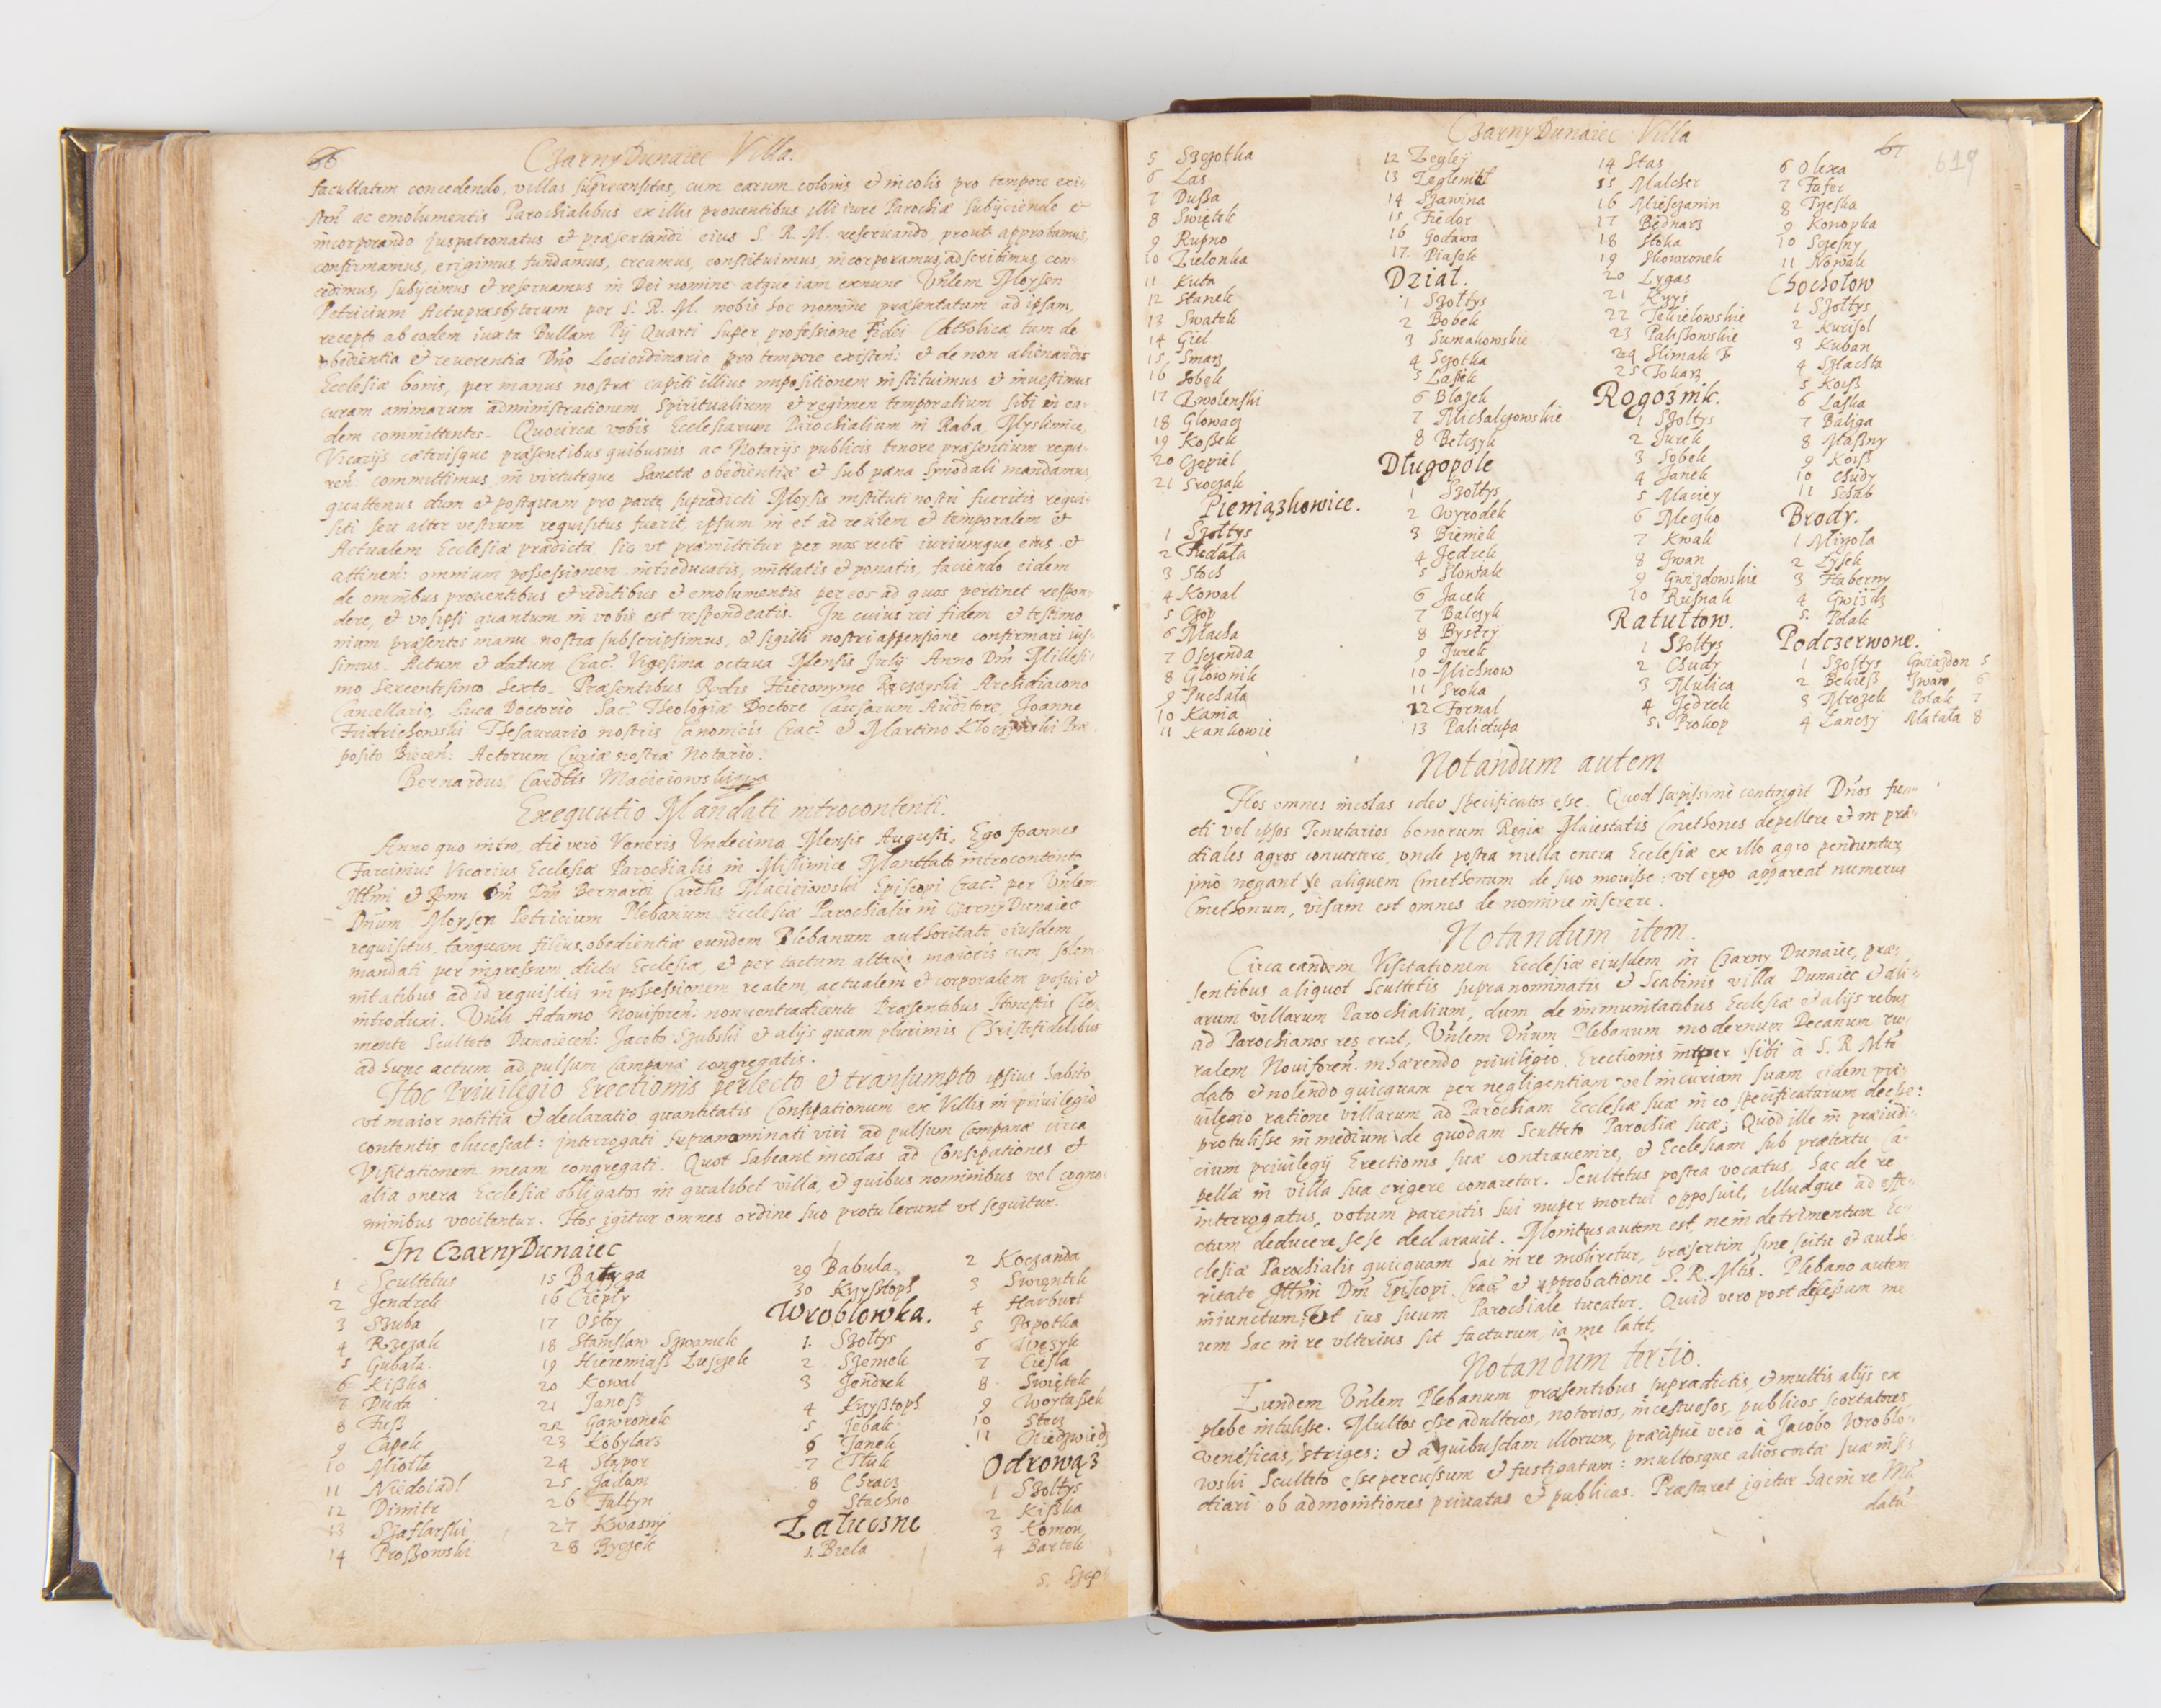 66
Czarny Dunaiec Villa.
facultatem concedendo, villas suprecensitas, cum earum colonis et incolis pro tempore exis-
ten: ac emolumentis Parochialibus ex illis prouentibus illi iure Parochiæ subijciendo et
incorporando juspatronatus et præsentandi eius S. R. M. reseruando, prout approbamus,
confirmamus, erigimus, fundamus, creamus, constituimus, incorporamus, adscribimus, con-
cedimus, subijcimus et reseruamus in Dei nomine atque iam exnunc Vnlem Moysen
Petricium Actupræsbyterum per S. R. M. nobis hoc nomine præsentatum ad ipsam,
recepto ab eodem iuxta Bullam Pij Quarti super professione Fidei Catholicæ tum de
obedientia et reuerentia Dno Lociordinario pro tempore existen: et de non alienandis
Ecclesiæ bonis, per manus nostræ capiti illius impositionem instituimus et inuestimus
curam animarum administrationem Spiritualium et regimen temporalium sibi in ea-
dem committentes. Quocirca vobis Ecclesiarum Parochialium in Raba, Myslimice,
Vicarijs cæterisque præsentibus quibusuis ac Notarijs publicis tenore præsentium requi-
ren: committimus, in virtuteque Sanctæ obedientiæ et sub pæna synodali mandamus,
quattenus dum et postquam pro parte supradicti Moysis instituti nostri fueritis requi-
siti seu alter vestrum requisitus fuerit, ipsum in et ad realem et temporalem et
Actualem Ecclesiæ prædictæ sic vt præmittitur per nos recte iuriumque eius et
attinen: omnium possessionem introducatis, mittatis et ponatis, faciendo eidem
de omnibus prouentibus et reditibus et emolumentis per eos ad quos pertinet respon-
dere, et vosipsi quantum in vobis est respondeatis. In cuius rei fidem et testimo
nium præsentes manu nostra subscripsimus, et sigilli nostri appensione confirmari ius-
simus. Actum et datum Crac: Vigesima octaua Mensis Julij Anno Dni Millesi-
mo Sexcentesimo Sexto. Præsentibus Rndis Hieronymo Archidiacono
Cancellario, Luca Doctorio Sac: Theologiæ Doctore Causarum Auditore, Joanne
Fridrichowski Thesaurario nostris Canonicis Crac: et Martino Præ
posito Biecen: Actorum Curiæ nostræ Notario.
Bernardus Cardlis Macieiowski
Exequutio Mandati introcontenti.
Anno quo intro, die vero Veneris Vndecima Mensis Augusti. Ego Joannes
Farcinius Vicarius Ecclesiæ Parochialis in Mislimice Mandato introcontento
Illmi et Rnni Dni Dni Bernardi Cardlis Macieiowski Episcopi Crac: per Vnlem
Dnum Moysen Petricium Plebanum Ecclesiæ Parochialis in Czarny Dunaiec
requisitus, tanquam filius obedientiæ eundem Plebanum authoritate eiusdem
mandati per ingressum dictæ Ecclesiæ, et per tactum altaris maioris cum solem-
nitatibus ad id requisitis in possessionem realem, actualem et corporalem posui et
introduxi. Vnli Adamo Nouiforen: non contradicente Præsentibus Honestis Cle-
mente Sculteto Dunaiecen: Jacobo Szubski et alijs quam plurimis Christifidelibus
ad hunc actum ad pulsum Campanæ congregatis.
Hoc Priuilegio Erectionis perlecto et transumpto ipsius habito
vt maior notitia et declaratio quantitatis Consipationum ex Villis in priuilegio
contentis elucescat: interrogati supranominati viri ad pulsum Campanæ circa
Visitationem meam congregati. Quot habeant incolas ad Consipationes et
alia onera Ecclesiæ obligatos in qualibet villa, et quibus nominibus vel cogno-
minibus vocitentur. Hos igitur omnes ordine suo protulerunt vt sequitur.
In Czarny Dunaiec
1 Scultetus
2 Jendrek
3 Szuba
4 Rzezak
5 Gubała
6 Kiszka
7 Duda
8 Fusz
9 Capek
10 Miotła
11 Niedoiadł
12 Dimitr
13 Szaflarski
14 Proszowski
15 Batyga
16 Ciepły
17 Ostoy
18 Stanisław Szwamek
19 Hieremiasz Łuszczek
20 Kowal
21 Janosz
22 Gawronek
23 Kobylarz
24 Stąpor
25 Jadam
26 Faltyn
27 Kwasny
28 Ryczek
29 Babula
30 Krzysztoph
Wroblowka.
1. Szołtys
2 Szemek
3 Jendrek
4 Krzysztoph
5 Jebak
6 Janek
7 Ctuk
8 Chracz
9 Stachno
Załuczne
1. Biela
2 Koczanda
3 Swiętek
4 Harbut
5 Papotka
6 Węzyk
7 Ciesla
8 Swiętek
9 Woytaszek
10 Stocz
11 Niedzwiedz
Odrowąz
1 Szołtys
2 Kiszka
3 Komon
4 Bartek
5. Szep
Czarny Dunaiec Villa
67
619
5 Szczotka
6 Las
7 Dusza
8 Swiętek
9 Rupno
10 Zielonka
11 Kuta
12 Stanek
13 Swatek
14 Giel
15. Smarz
16 Sobek
17 Zwolenski
18 Głowacz
19 Koszek
20 Czepiel
21 Sroczak
Pieniązkowice.
1 Szołtys
2 Fiedała
3 Stoch
4 Kowal
5 Czop
6 Macha
7 Oszczenda
8 Głownik
9 Puchała
10 Kania
11 Kankowie
12 Zegley
13 Zeglenik
14 Szawina
15. Fiedor
16 Godawa
17. Piasek
Dział.
1 Szołtys
2 Bobek
3 Sumakowskie
4 Szczotka
5 Lasek
6 Blazek
7 Michalczowskie
8 Bełczyk
Długopole
1 Szołtys
2 Wyrodek
3 Biemek
4 Jędrek
5 Słowiak
6 Jacek
7 Balczyk
8 Bystry
9 Jurek
10 Michnow
11 Sroka
12 Fornal
13 Palidupa
14 Stas
15 Malcher
16 Miesczanin
17 Bednarz
18 Stoka
19 Skowronek
20 Lygas
21 Kryś
22 Tekielowskie
23 Paliszowskie
24 Slimak F
25 Tokarz
Rogoznik.
1 Szołtys
2 Jurek
3 Sobek
4 Janek
5 Maciey
6 Meczko
7 Kwak
8 Jwan
9 Gwizdowskie
10 Rusnak
Ratułtow.
1 Szołtys
2 Chudy
3 Mulica
4 Jedrek
5. Prokop
6 Olexa
7 Fafer
8 Trzeska
9 Konopka
10 Szczesny
11 Nowak
Chochołow
1 Szołtys
2 Kurisol
3 Kuban
4 Szlachta
5 Koisz
6 Laska
7 Baliga
8 Maszny
9 Koisz
10 Chudy
11 Schab
Brody.
1 Mizoła
2 Łysek
3 Haberny
4 Gwizdz
5. Polak
Podczerwone.
1 Szołtys Gwiazdon 5
2 Bekiesz Jwan 6
3 Mrozek Polak 7
4 Lanczy Matała 8
Notandum autem
Hos omnes incolas ideo specificatos esse. Quod sæpissime contingit Dnos fun-
di vel ipsos Tenutarios bonorum Regiæ Maiestatis Cmethones depellere et in præ-
diales agros conuertere, vnde postea nulla onera Ecclesiæ ex illo agro penduntur,
imo negant se aliquem Cmethonum de suo mouisse: vt ergo appareat numerus
Cmethonum, visum est omnes de nomine inserere.
Notandum item.
Circa eandem Visitationem Ecclesiæ eiusdem in Czarny Dunaiec, præ-
sentibus aliquot Scultetis supranominatis et Scabinis villæ Dunaiec et ali-
arum villarum Parochialium, dum de immunitatibus Ecclesiæ et alijs rebus
ad Parochianos res erat, Vnlem Dnum Plebanum modernum Decanum ru-
ralem Nouiforen: inhærendo priuilegio Erectionis nuper sibi à S. R. Mte
dato et nolendo quicquam per negligentiam vel incuriam suam eidem pri-
uilegio ratione villarum ad Parochiam Ecclesiæ suæ in eo specificatarum deesse:
protulisse in medium de quodam Sculteto Parochiæ suæ; Quod ille in præiudi-
cium priuilegij Erectionis suæ contrauenire, et Ecclesiam sub prætextu Ca-
pellæ in villa sua erigere conaretur. Scultetus postea vocatus, hac de re
interrogatus, votum parentis sui nuper mortui opposuit, illudque ad effe-
ctum deducere sese declarauit. Monitus autem est, ne in detrimentum Ec-
clesiæ Parochialis quicquam hac in re moliretur, præsertim sine scitu et autho-
ritate Illmi Dni Episcopi Crac: et approbatione S. R. Mtis. Plebano autem
iniunctum, vt ius suum Parochiale tueatur. Quid vero post discessum me
um hac in re vlterius sit facturum, id me latet.
Notandum tertio.
Eundem Vnlem Plebanum præsentibus supradictis, et multis alijs ex
plebe intulisse. Multos esse adulteros, notorios, incestuosos, publicos scortatores
veneficas, striges: et à quibusdam illorum, præcipue vero à Jacobo Wroblo-
wski Sculteto esse percussum et fustigatum: multosque alios in
ctiari ob admonitiones priuatas et publicas. Præstaret igitur hac in re Man
datu